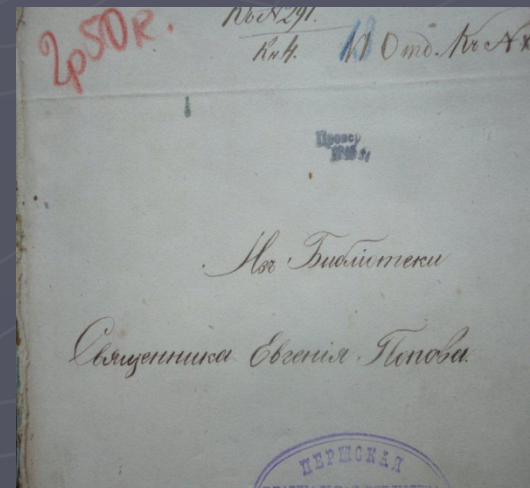 2р50к.
Къ № 291.
Кн 4.
Отд. Къ №
Провер
Изъ Библіотеки
Священника Евгенія Попова.
ПЕРМСКАЯ